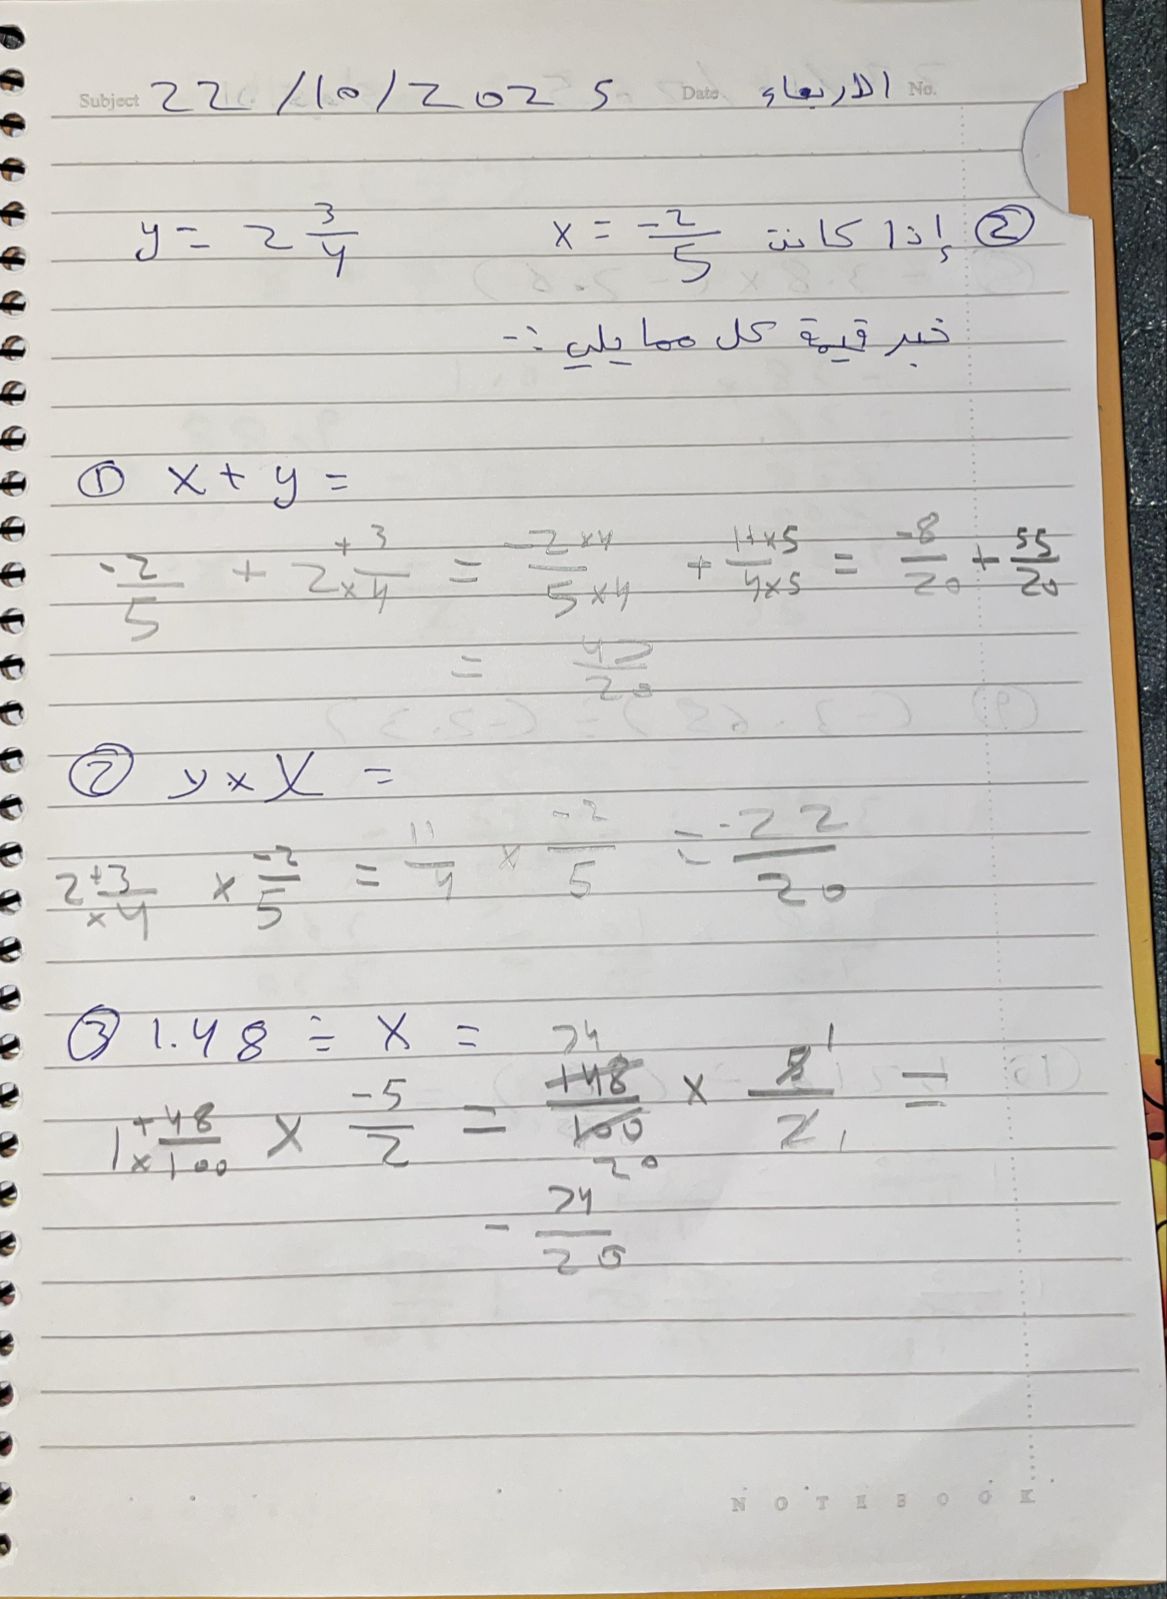 Subject 22/10/2025 Date الاربعاء No.
② إذا كانت x = -2/5 y = 2 3/4
خبر قيمة كل مما يلي :-
① x + y =
-2/5 + 2 + 3/× 4 = -2×4/5×4 + 11×5/4×5 = -8/20 + 55/20
= 47/20
② y × x =
2 + 3/× 4 × -2/5 = 11/4 × -2/5 = -22/20
③ 1.48 ÷ x =
1 + 48/× 100 × -5/2 = 148/100 74 20 × 5/2 1 1 =
- 74/20
NOTEBOOK